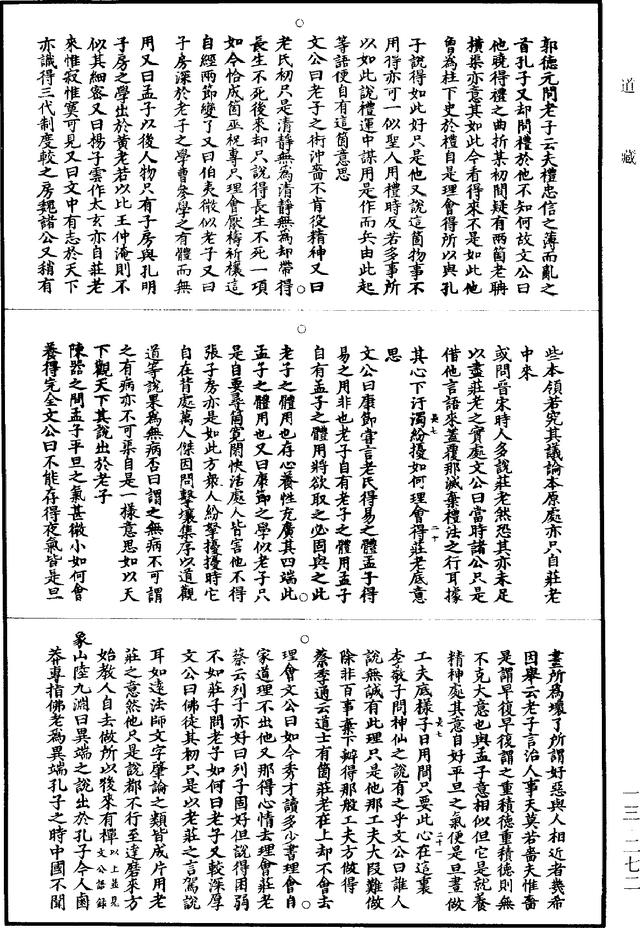 道藏
郭德元問老子云夫禮忠信之薄而亂之
首孔子又却問禮於他不知何故文公曰
他曉得禮之曲折某初間疑有兩箇老聃
橫渠亦意其如此今看得來不是如此他
曾為柱下史於禮自是理會得所以與孔
子說得如此好只是他又說這箇物事不
用得亦可一似聖人用禮時反若多事所
以如此說禮運中謀用是作而兵由此起
等語便自有這箇意思
文公曰老子之術沖嗇不肯役精神又曰
老氏初只是清靜無為清靜無為却帶得
長生不死後來却只說得長生不死一項
如今恰成箇巫祝專只理會厭禱祈禳這
自經兩節變了又曰伯夷微似老子又曰
子房深於老子之學曹參學之有體而無
用又曰孟子以後人物只有子房與孔明
子房之學出於黃老若以比王仲淹則不
似其細密又曰揚子雲作太玄亦自莊老
來惟寂惟寞可見又曰文中有志於天下
亦識得三代制度較之房魏諸公又稍有
些本領若究其議論本原處亦只自莊老
中來
或問晉宋時人多說莊老然恐其亦未足
以盡莊老之實處文公曰當時諸公只是
借他言語來蓋覆那滅棄禮法之行耳據
其心下汙濁紛擾如何理會得莊老底意
思
文公曰康節嘗言老氏得易之體孟子得
易之用非也老子自有老子之體用孟子
自有孟子之體用將欲取之必固與之此
老子之體用也存心養性充廣其四端此
孟子之體用也又曰康節之學似老子只
是自要尋箇寬閑快活處人皆害他不得
張子房亦是如此方衆人紛拏擾擾時它
自在背處萬人傑因問擊壤集序以道觀
道等說果為無病否曰謂之無病不可謂
之有病亦不可渠自是一樣意思如以天
下觀天下其說出於老子
陳器之問孟子平旦之氣甚微小如何會
養得完全文公曰不能存得夜氣皆是旦
晝所為壞了所謂好惡與人相近者幾希
因舉云老子言治人事天莫若嗇夫惟嗇
是謂早復早復謂之重積德重積德則無
不克大意也與孟子意相似但它是就養
精神處其意自好平旦之氣便是旦晝做
工夫底樣子日用間只要此心在這裏
李敬子問神仙之說有之乎文公曰誰人
說無誠有此理只是他那工夫大段難做
除非百事棄下辦得那般工夫方做得
蔡季通云道士有箇莊老在上却不會去
理會文公曰如今秀才讀多少書理會自
家道理不出他又那得心情去理會莊老
蔡云列子亦好曰列子固好但說得困弱
不如莊子問老子如何曰老子又較深厚
文公曰佛徒其初只是以老莊之言駕說
耳如遠法師文字肇論之類皆成片用老
莊之意然他只是說都不行至達磨來方
始教人自去做所以後來有禪以上並見文公語錄
象山陸九淵曰異端之說出於孔子今人鹵
莽專指佛老為異端孔子之時中國不聞